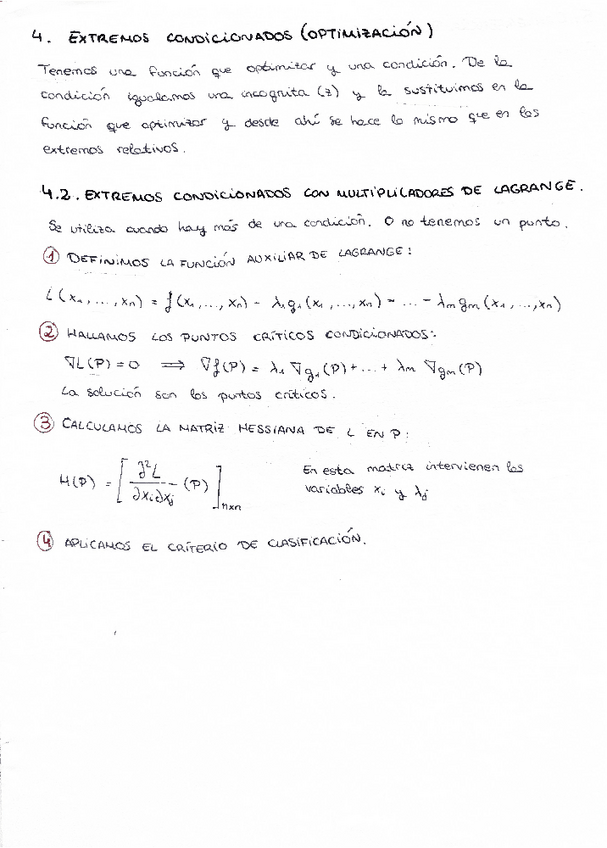 4. EXTREMOS CONDICIONADOS (OPTIMIZACIÓN)
Tenemos una función que optimizar y una condición. De la
condición igualamos una incognita (z) y la sustituimos en la
función que optimizar y desde ahí se hace lo mismo que en los
extremos relativos.
4.2. EXTREMOS CONDICIONADOS CON MULTIPLICADORES DE LAGRANGE.
Se utiliza cuando hay más de una condición. O no tenemos un punto.
① DEFINIMOS LA FUNCIÓN AUXILIAR DE LAGRANGE:
L(x₁,...,xₙ) = f(x₁,...,xₙ) - λ₁g₁(x₁,...,xₙ) - ... - λₘgₘ(x₁,...,xₙ)
② HALLAMOS LOS PUNTOS CRÍTICOS CONDICIONADOS:
∇L(P) = 0 ⟹ ∇f(P) = λ₁ ∇g₁(P) + ... + λₘ ∇gₘ(P)
La solución son los puntos críticos.
③ CALCULAMOS LA MATRIZ HESSIANA DE L EN P:
H(P) = [∂²L/∂xᵢ∂xⱼ (P)]ₙₓₙ
En esta matriz intervienen las
variables xᵢ y λⱼ
④ APLICAMOS EL CRITERIO DE CLASIFICACIÓN.